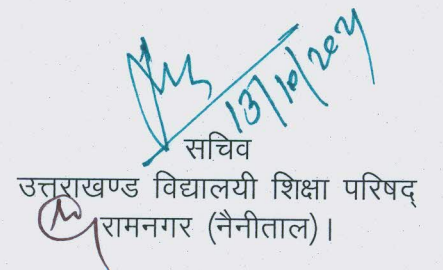 13/10/2021
सचिव
उत्तराखण्ड विद्यालयी शिक्षा परिषद्
रामनगर (नैनीताल)।